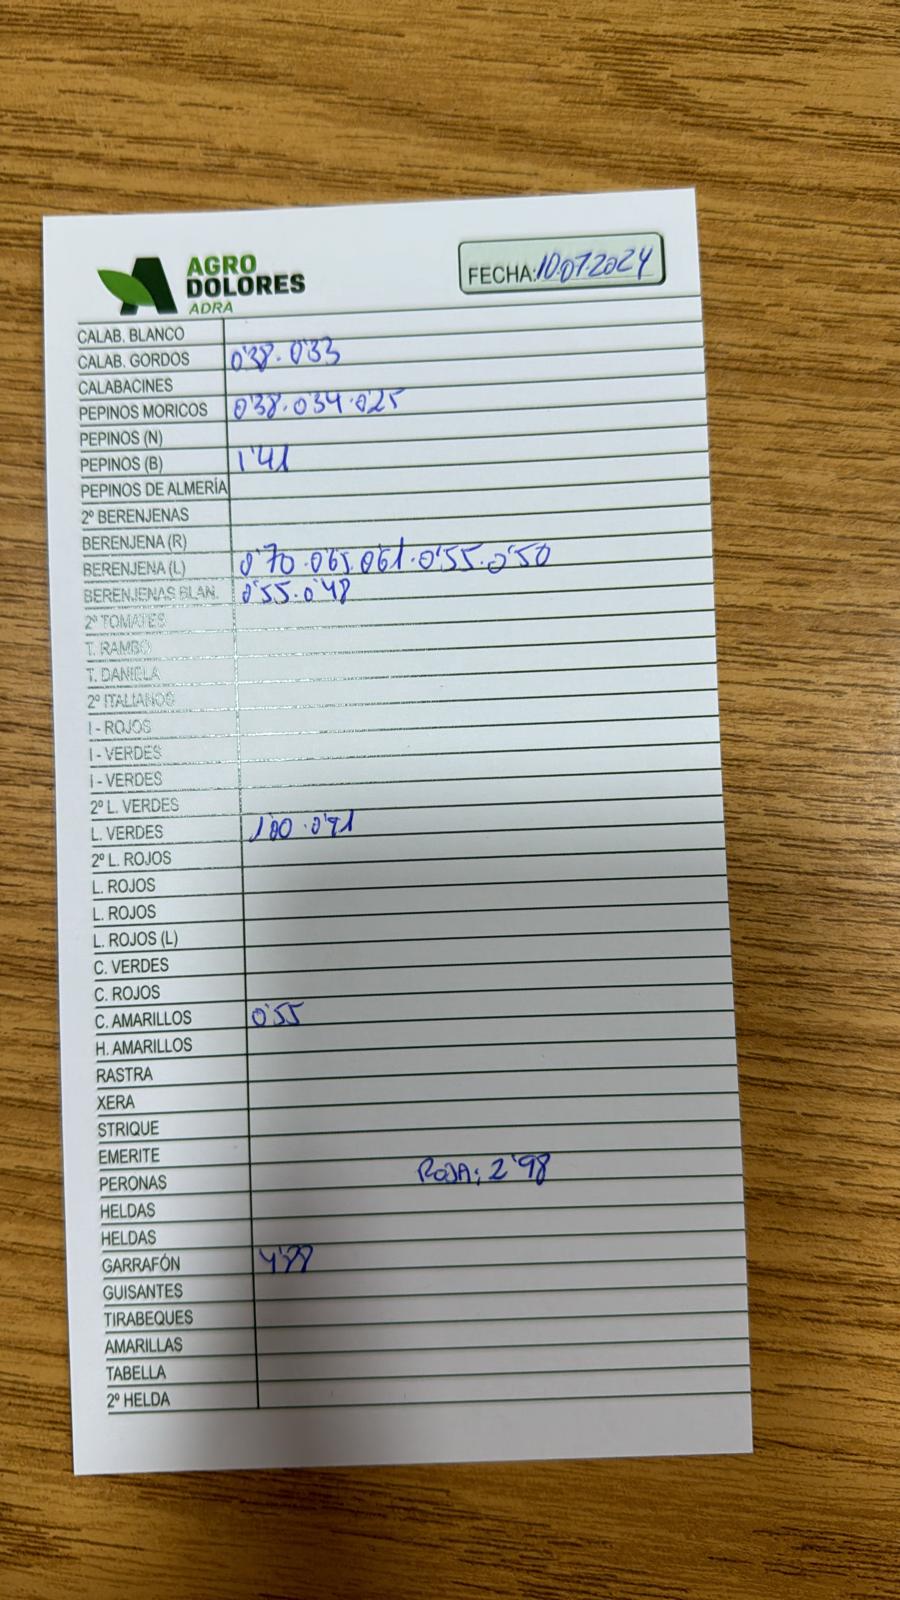 AGRO
DOLORES
ADRA
FECHA: 10.07.2024
CALAB. BLANCO
CALAB. GORDOS 0'38. 0'33
CALABACINES
PEPINOS MORICOS 0'38. 034. 025
PEPINOS (N)
PEPINOS (B) 1'41
PEPINOS DE ALMERÍA
2º BERENJENAS
BERENJENA (R)
BERENJENA (L) 0'70. 065. 061. 0'55. 0'50
BERENJENAS BLAN. 0'55. 0'48
2º TOMATES
T. RAMBO
T. DANIELA
2º ITALIANOS
I - ROJOS
I - VERDES
I - VERDES
2º L. VERDES
L. VERDES
2º L. ROJOS
L. ROJOS
L. ROJOS
L. ROJOS (L)
C. VERDES
C. ROJOS
C. AMARILLOS 0'55
H. AMARILLOS
RASTRA
XERA
STRIQUE
EMERITE
PERONAS ROJA; 2'98
HELDAS
HELDAS
GARRAFÓN
GUISANTES
TIRABEQUES
AMARILLAS
TABELLA
2º HELDA